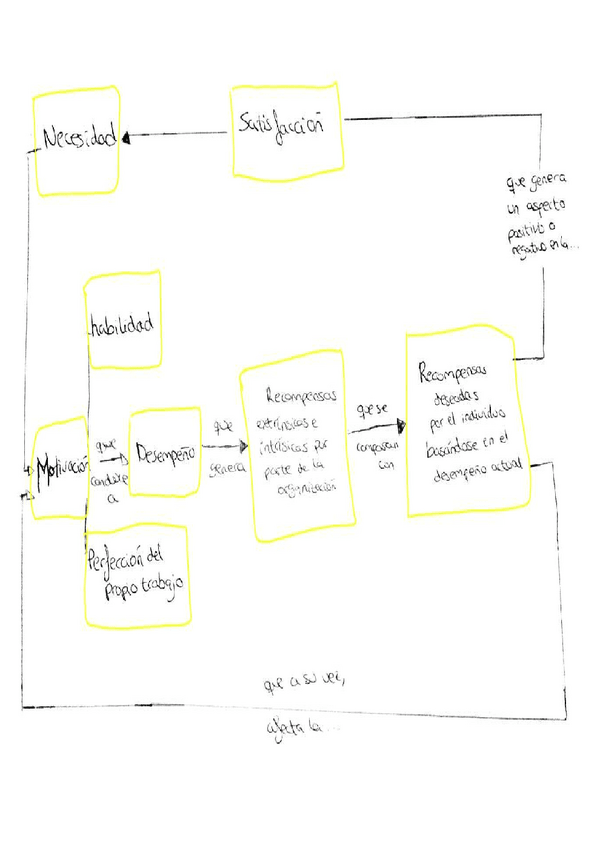 Necesidad
Satisfacción
que genera
un aspecto
positivo o
negativo en la...
habilidad
Motivación
que
conduce
a
Desempeño
que
genera
Recompensas
extrínsicas e
intrísicas por
parte de la
organización
que se
comparan
con
Recompensas
deseadas
por el individuo
basándose en el
desempeño actual
Perfección del
propio trabajo
que a su vez,
afecta la...